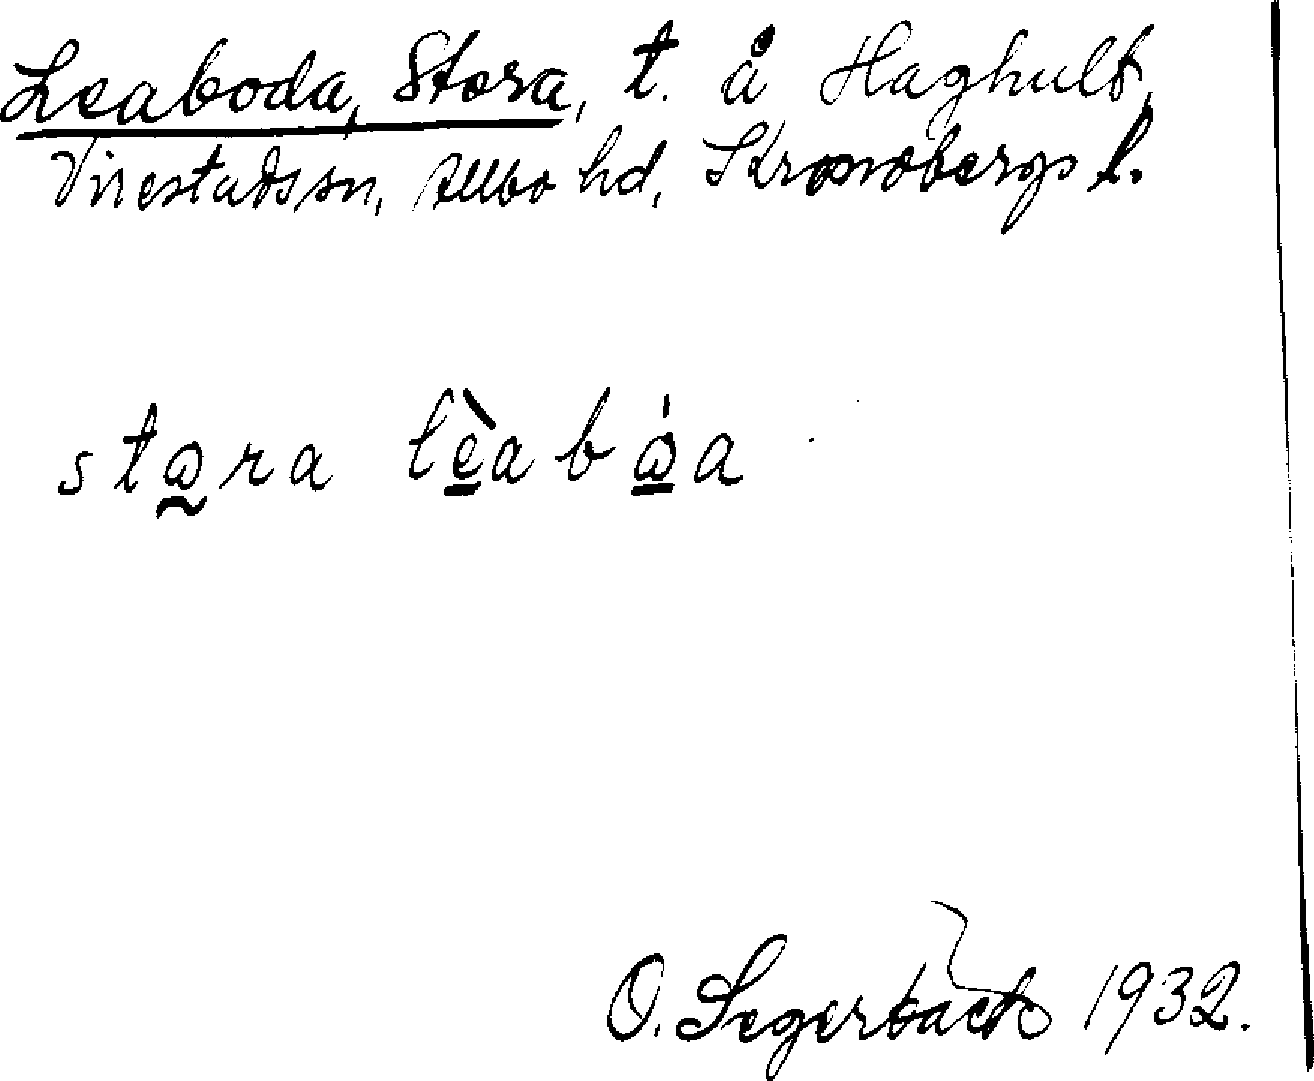 Leaboda, Stora, t. å Haghult,
Virestads sn, Allbo hd, Kronobergs l.
stora lèabòa
O. Segerbäck 1932.